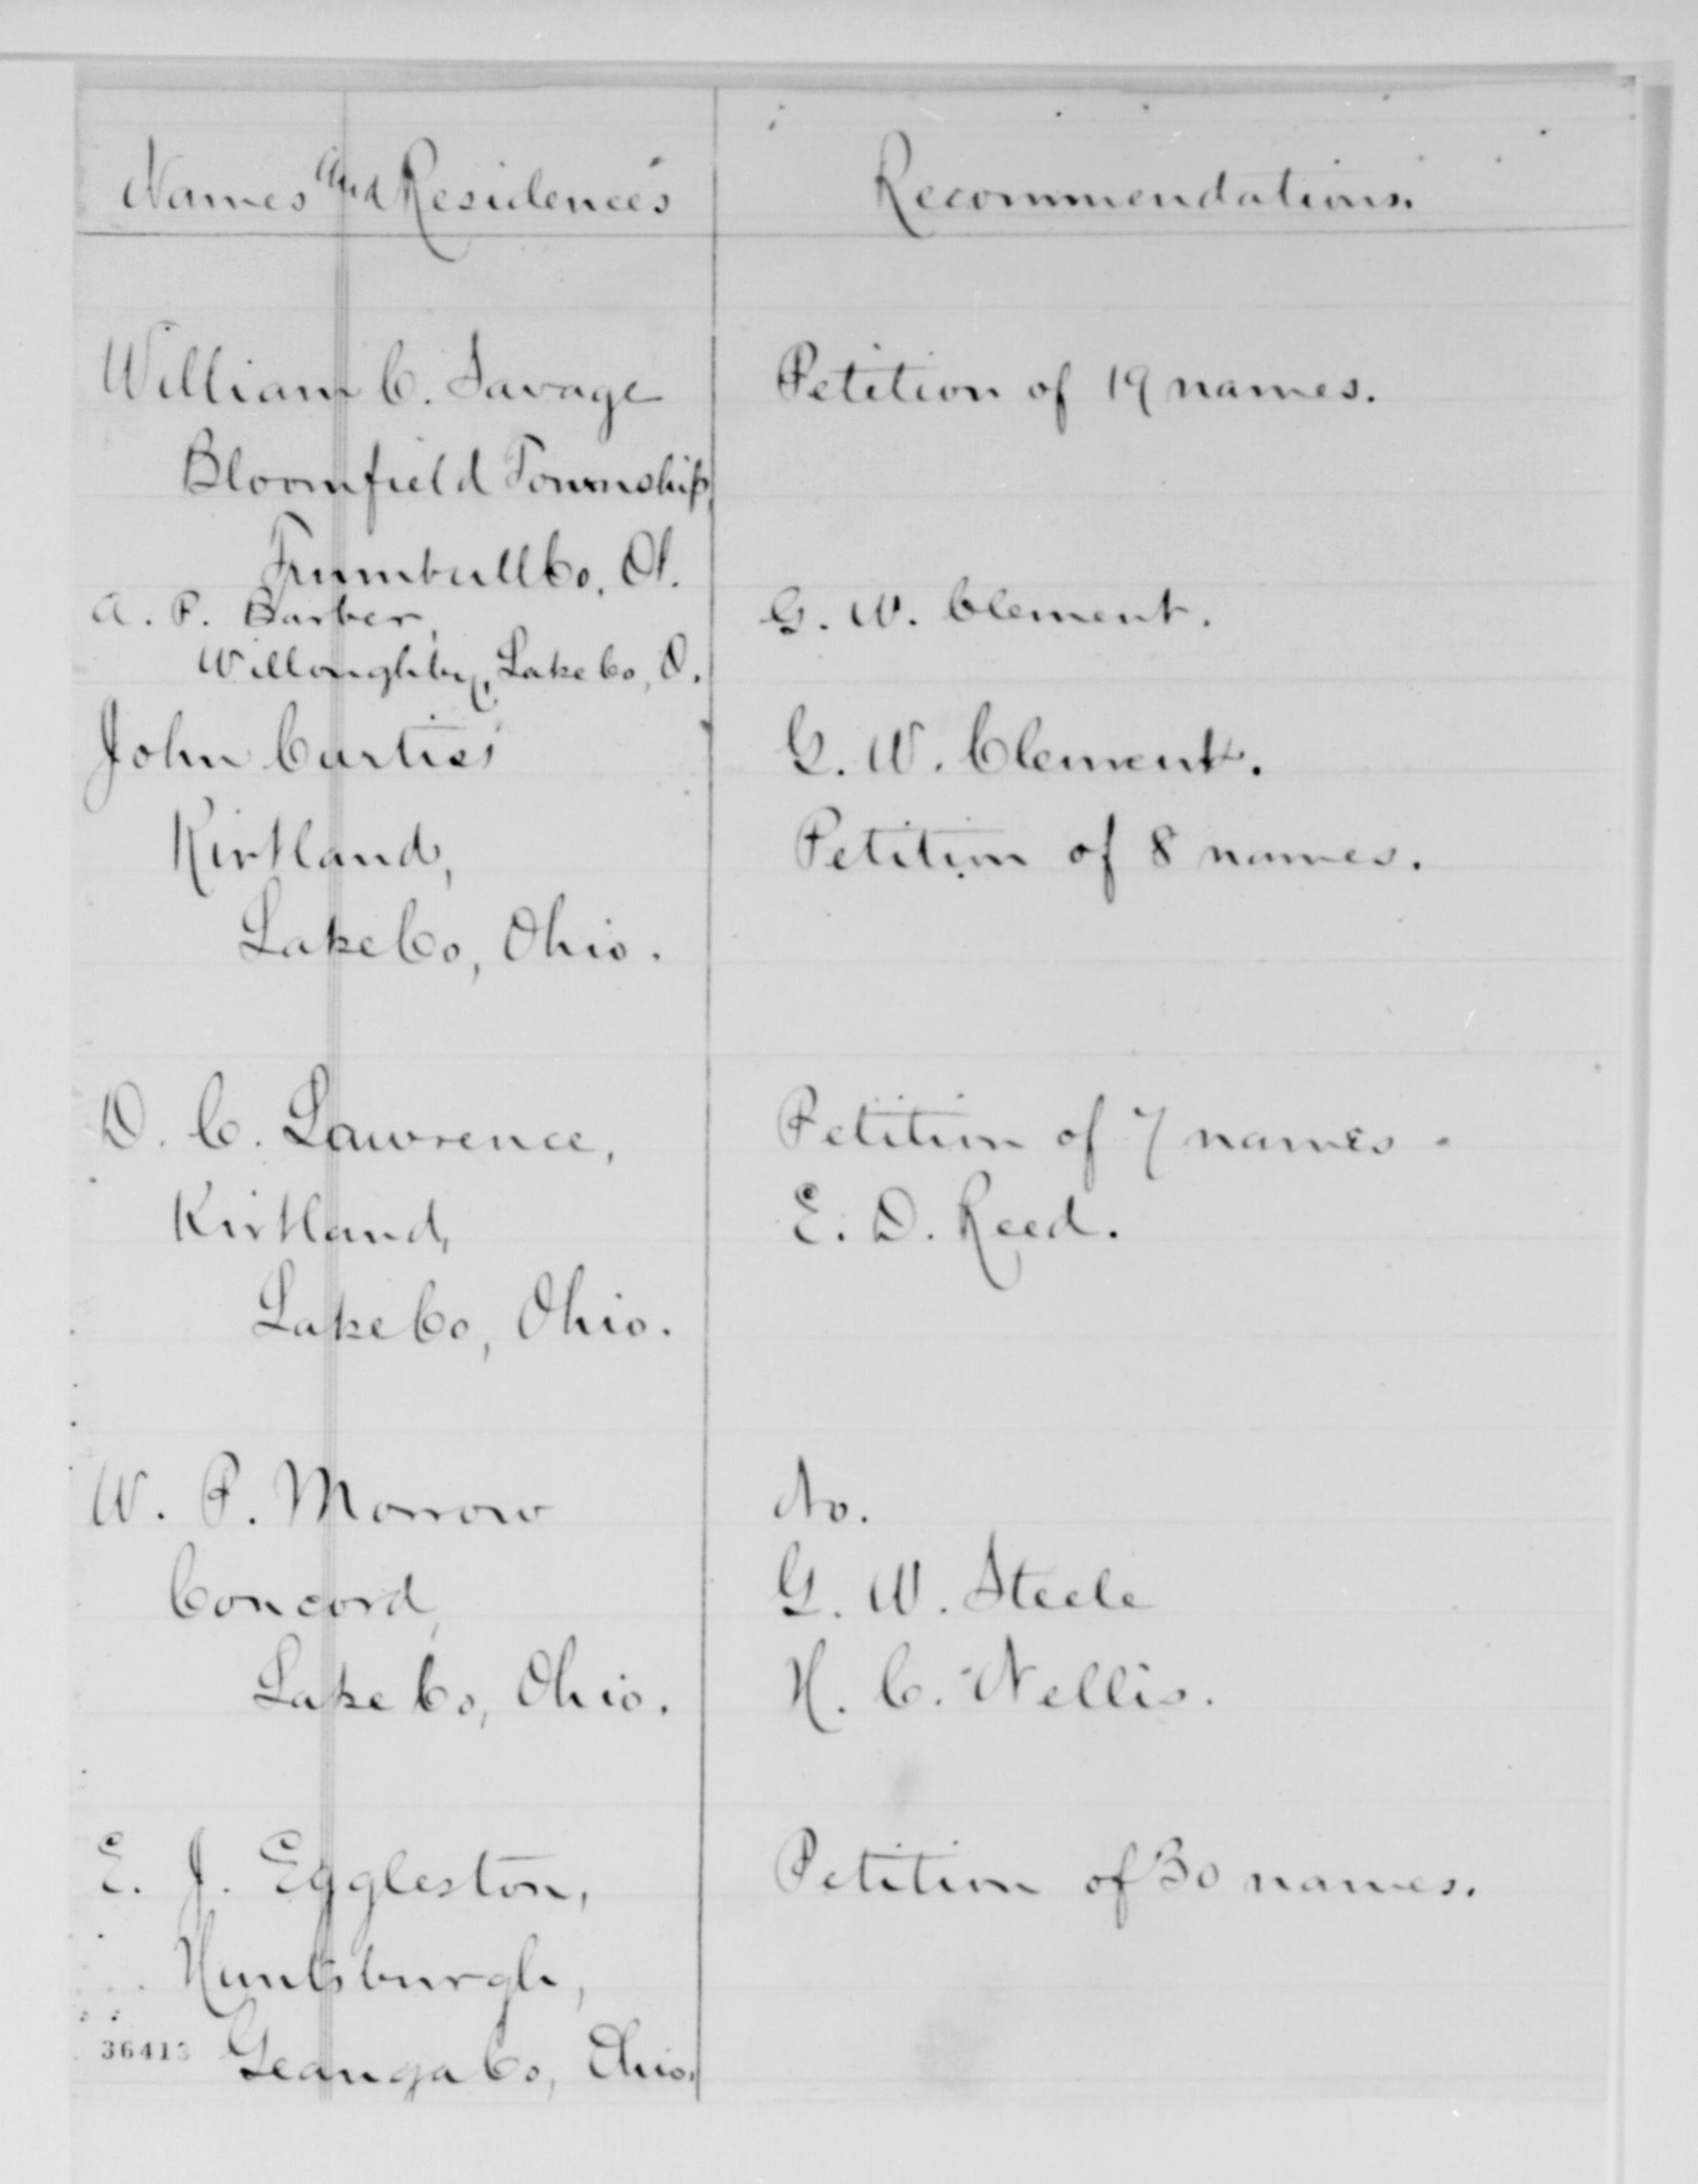 Names and Residences
Recommendations.
William C. Savage
Petition of 19 names.
Bloomfield Township,
Trumbull Co, O.
A. P. Barber,
G. W. Clement.
Willoughby, Lake Co, O.
John Curtiss
G. W. Clement.
Kirtland,
Petition of 8 names.
Lake Co, Ohio.
D. C. Lawrence,
Petition of 7 names.
Kirtland,
E. D. Reed.
Lake Co, Ohio.
W. P. Morrow
No.
Concord,
G. W. Steele
Lake Co, Ohio.
H. C. Nellis.
E. J. Eggleston,
Petition of 30 names.
Huntsburgh,
36413 Geauga Co, Ohio.